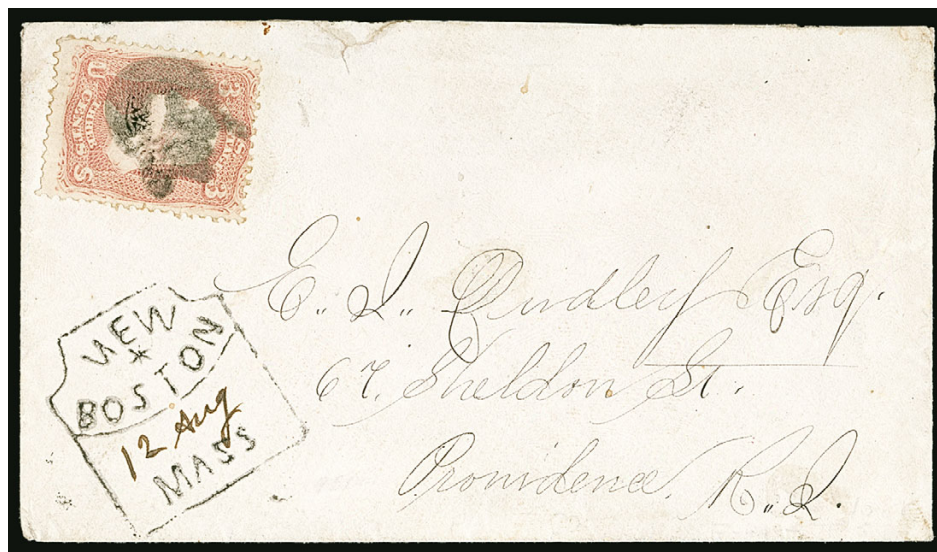 U 3
THREE CENTS
S 3
NEW
*
BOSTON
12 Aug
MASS
E. I. Dudley Esq.
67. Sheldon St.
Providence
R. I.